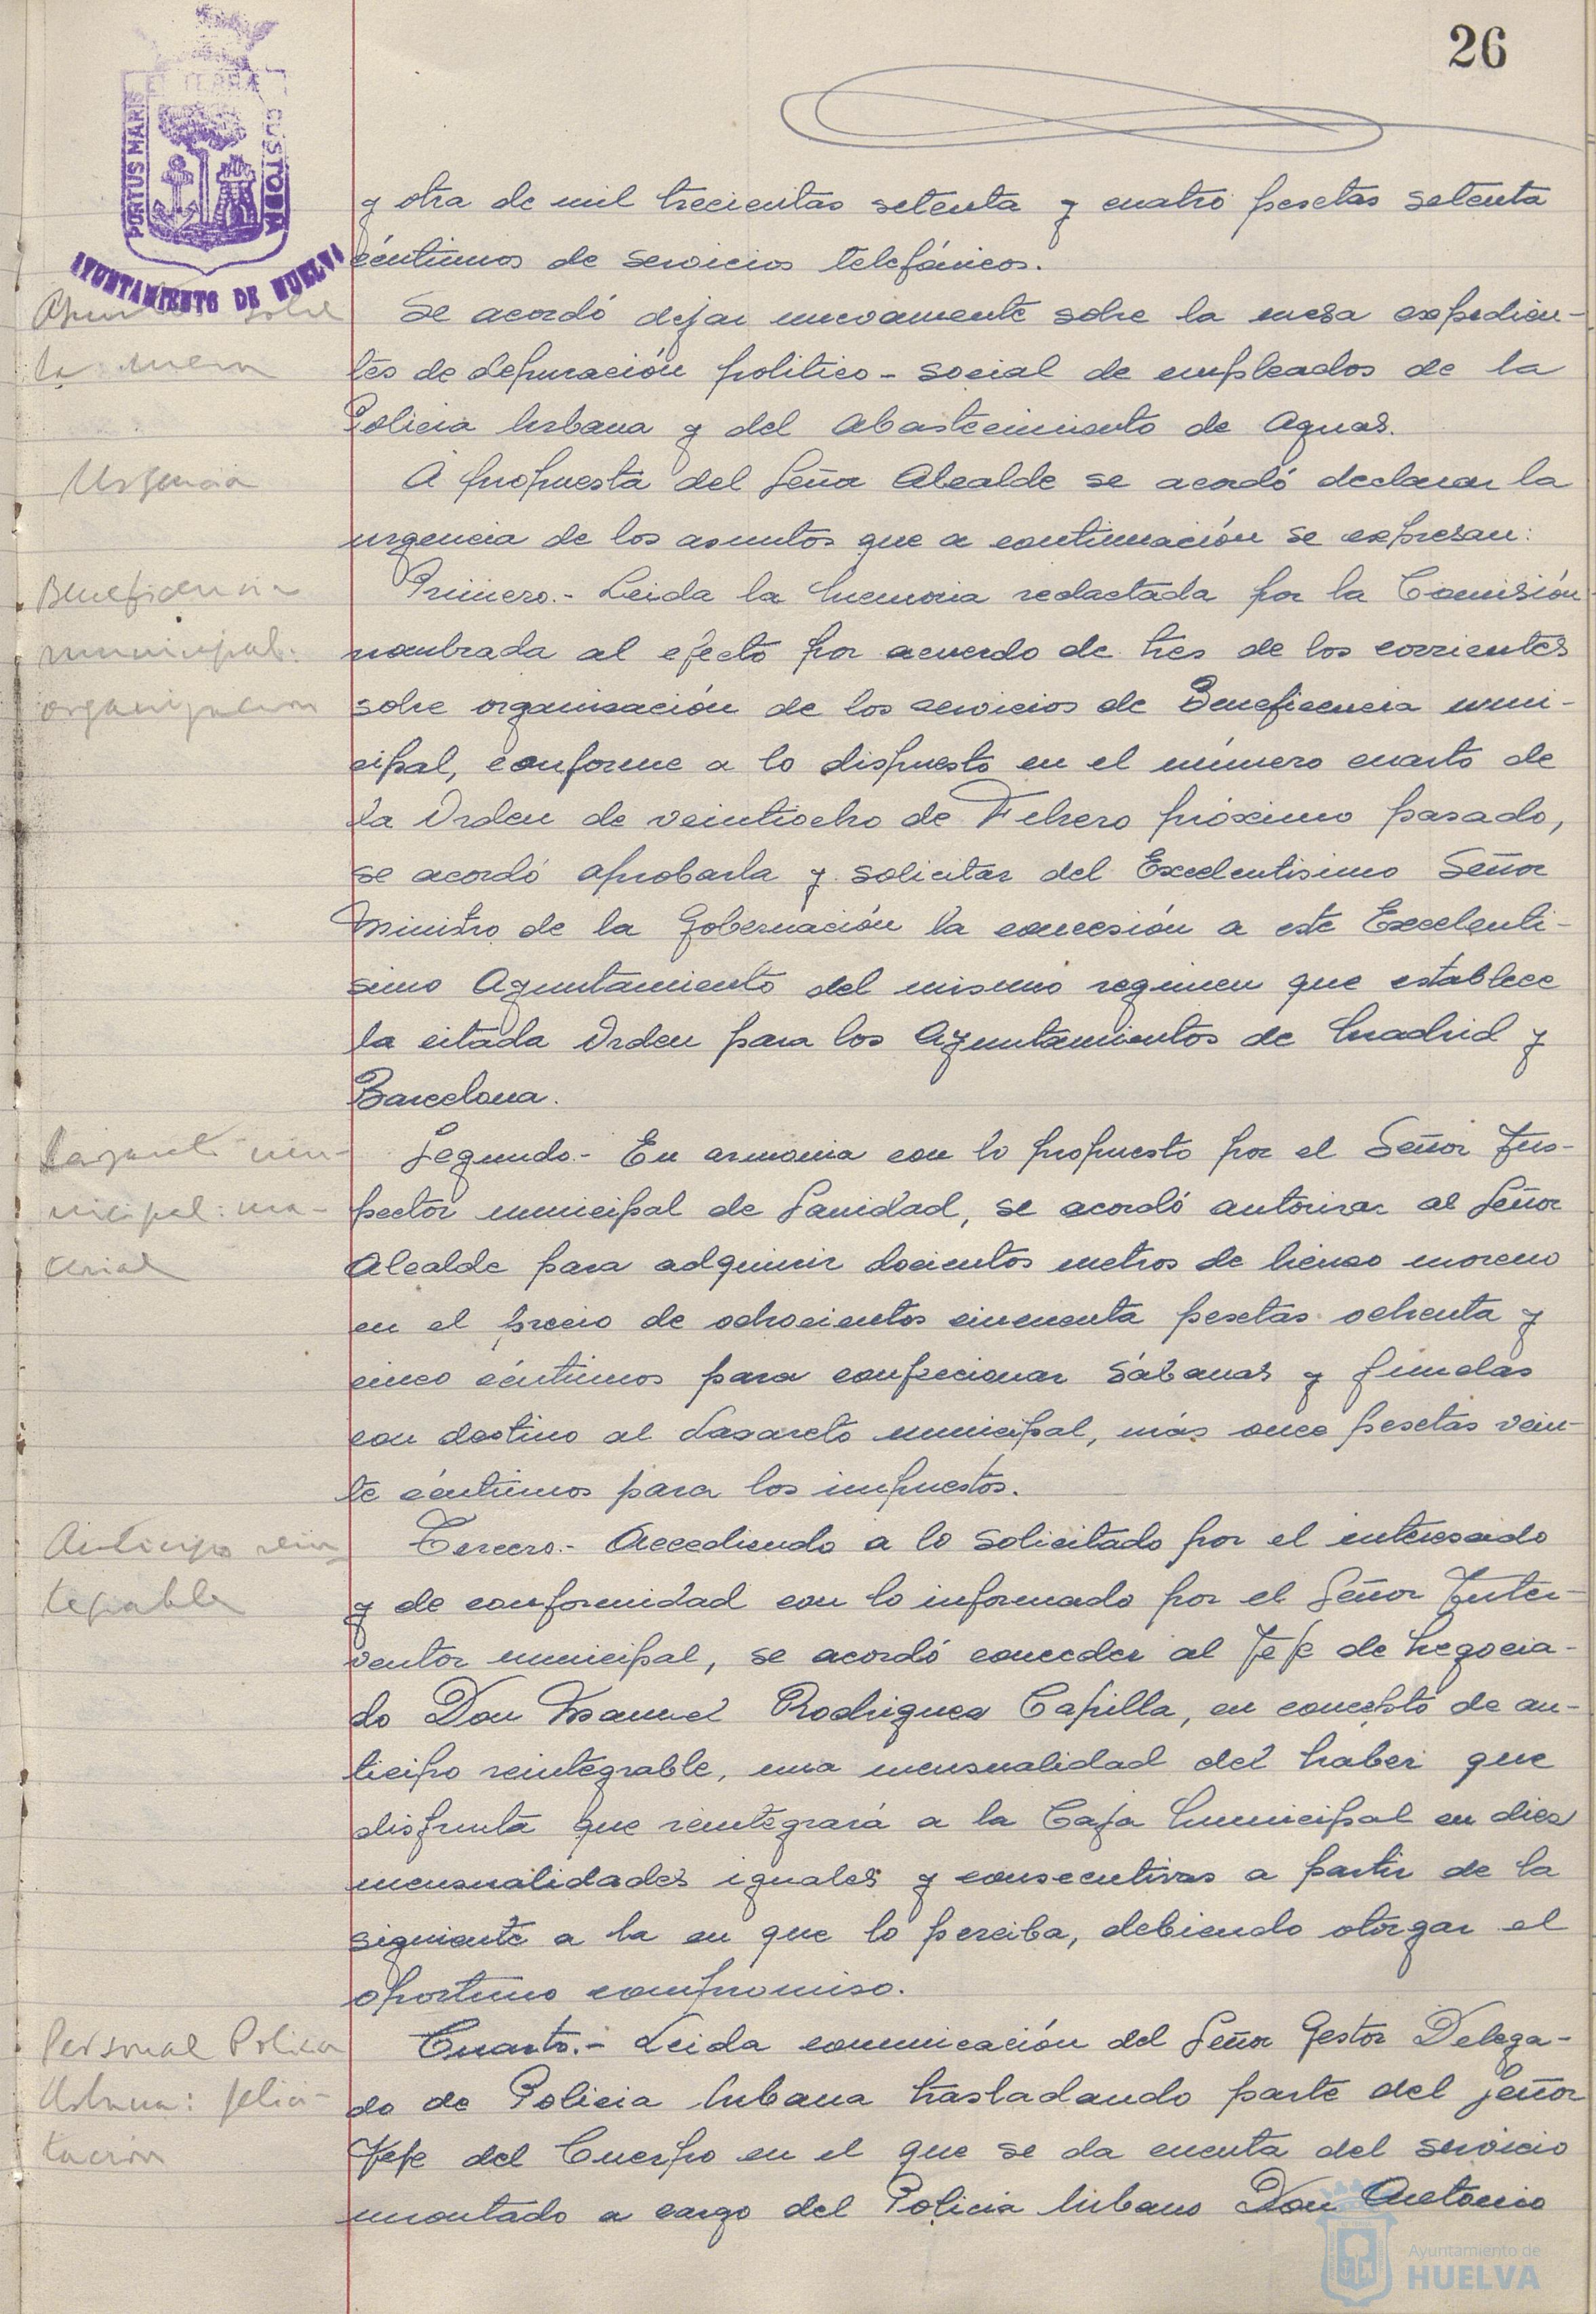 26
ET TERRÆ
PORTUS MARIS
CUSTODIA
AYUNTAMIENTO DE HUELVA
y otra de mil trecientas setenta y cuatro pesetas setenta
céntimos de servicios telefónicos.
Asuntos sobre
la mesa
Se acordó dejar nuevamente sobre la mesa expedien-
tes de depuración politico-social de empleados de la
Policia Urbana y del Abastecimiento de Aguas.
Urgencia
A propuesta del Señor Alcalde se acordó declarar la
urgencia de los asuntos que a continuación se expresan:
Beneficencia
municipal:
organización
Primero.- Leida la Memoria redactada por la Comisión
nombrada al efecto por acuerdo de tres de los corrientes
sobre organización de los servicios de Beneficencia muni-
cipal, conforme a lo dispuesto en el número cuarto de
la Orden de veintiocho de Febrero próximo pasado,
se acordó aprobarla y solicitar del Excelentisimo Señor
Ministro de la Gobernación la concesión a este Excelenti-
simo Ayuntamiento del mismo regimen que establece
la citada Orden para los Ayuntamientos de Madrid y
Barcelona.
Lazareto mu-
nicipal: ma-
terial
Segundo.- En armonia con lo propuesto por el Señor Ins-
pector municipal de Sanidad, se acordó autorizar al Señor
Alcalde para adquirir docientos metros de lienzo moreno
en el precio de ochocientos cincuenta pesetas ochenta y
cinco céntimos para confeccionar sábanas y fundas
con destino al Lazareto municipal, más once pesetas vein-
te céntimos para los impuestos.
Anticipo rein-
tegrable
Tercero.- Accediendo a lo solicitado por el interesado
y de conformidad con lo informado por el Señor Inter-
ventor municipal, se acordó conceder al Jefe de Negocia-
do Don Manuel Rodriguez Capilla, en concepto de an-
ticipo reintegrable, una mensualidad del haber que
disfruta que reintegrará a la Caja Municipal en diez
mensualidades iguales y consecutivas a partir de la
siguiente a la en que lo perciba, debiendo otorgar el
oportuno compromiso.
Personal Policia
Urbana: felici-
tación
Cuarto.- Leida comunicación del Señor Gestor Delega-
do de Policia Urbana trasladando parte del Señor
Jefe del Cuerpo en el que se da cuenta del servicio
montado a cargo del Policia Urbano Don Antonio
Ayuntamiento de
HUELVA